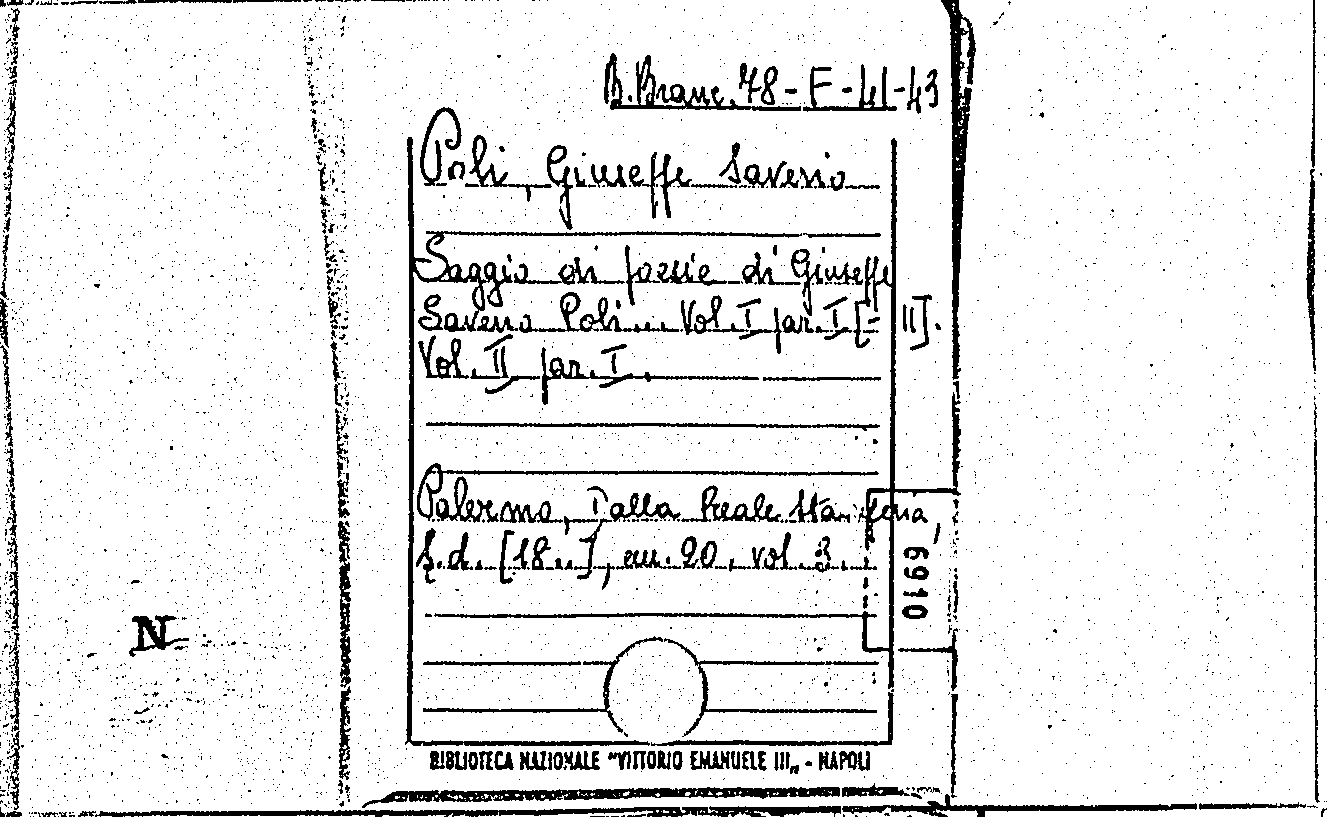 B.Branc. 78-F-41-43
Poli, Giuseppe Saverio
Saggio di poesie di Giuseppe
Saverio Poli... Vol. I par. I [- II].
Vol. II par. I.
Palermo, Dalla Reale Stamperia,
s.d. [18..], cm. 20, vol. 3.
6910
N
BIBLIOTECA NAZIONALE "VITTORIO EMANUELE III„ - NAPOLI